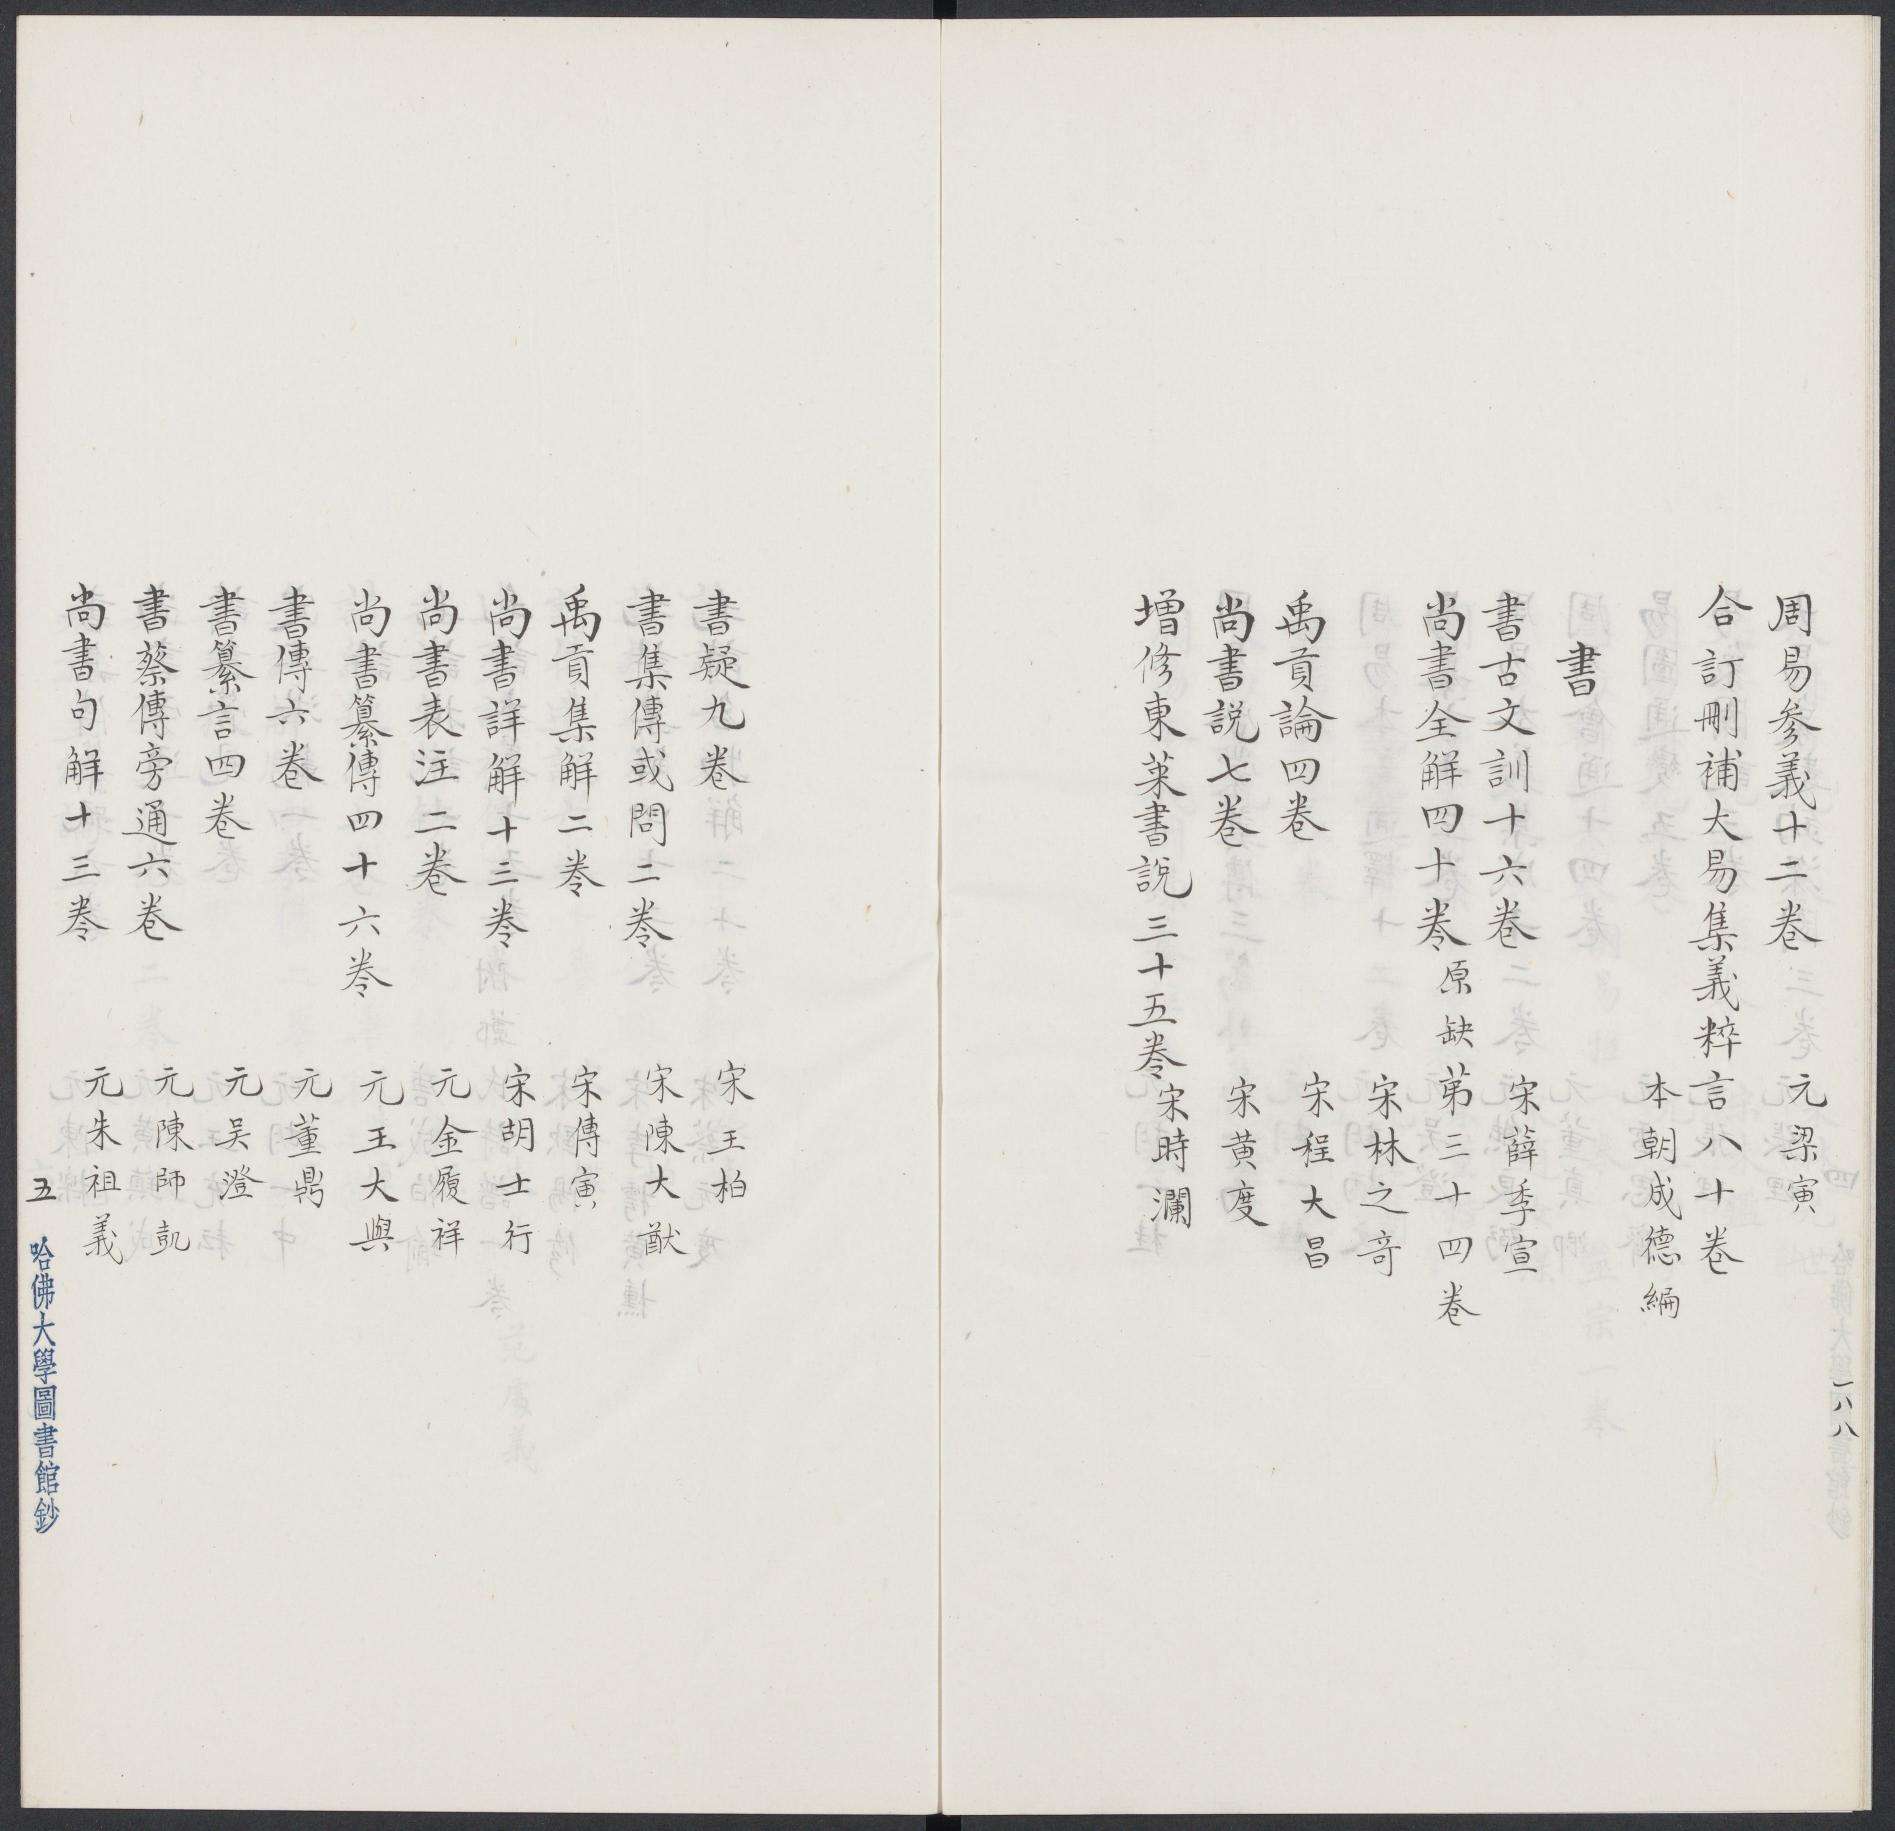 周易參義十二卷　元梁寅
合訂刪補大易集義粹言八十卷
本朝成德編
書
書古文訓十六卷　宋薛季宣
尚書全解四十卷原缺第三十四卷
宋林之奇
禹貢論四卷　宋程大昌
尚書說七卷　宋黃度
增修東萊書說三十五卷宋時瀾
一八八
書疑九卷　宋王柏
書集傳或問二卷　宋陳大猷
禹貢集解二卷　宋傅寅
尚書詳解十三卷　宋胡士行
尚書表注二卷　元金履祥
尚書纂傳四十六卷　元王大與
書傳六卷　元董鼎
書纂言四卷　元吳澄
書蔡傳旁通六卷　元陳師凱
尚書句解十三卷　元朱祖義
五
哈佛大學圖書館鈔